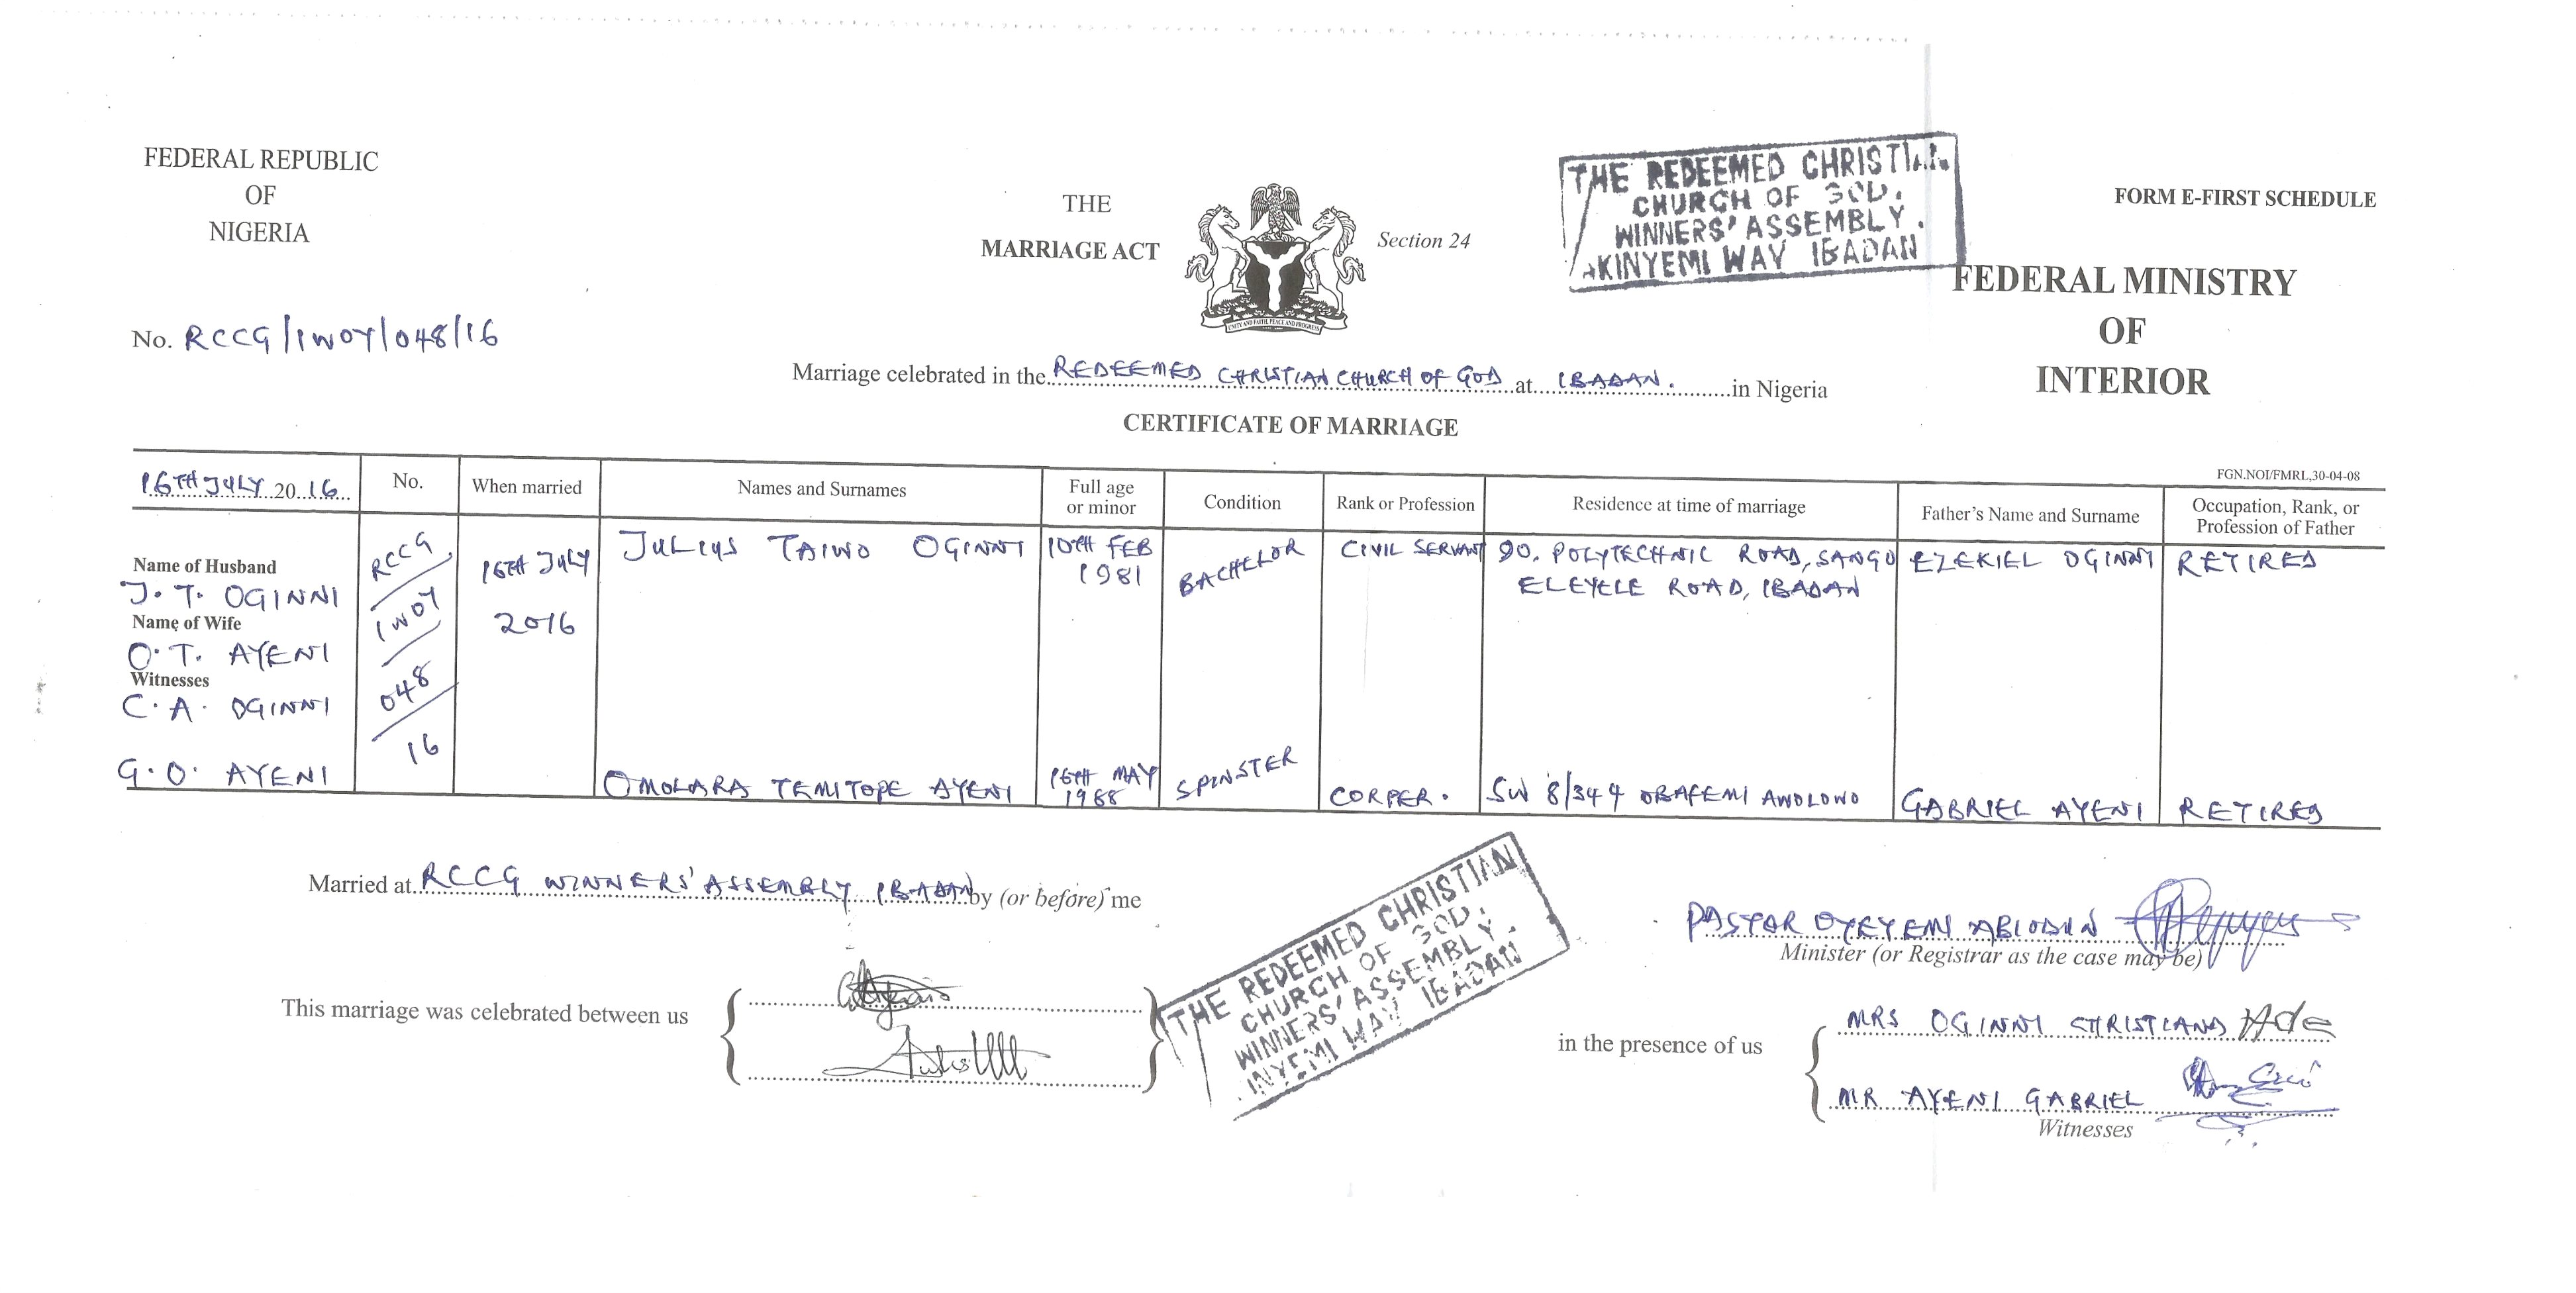 FEDERAL REPUBLIC
OF
NIGERIA
THE
MARRIAGE ACT
UNITY AND FAITH, PEACE AND PROGRESS
Section 24
THE REDEEMED CHRISTIAN
CHURCH OF GOD.
WINNERS' ASSEMBLY.
AKINYEMI WAY IBADAN
FORM E-FIRST SCHEDULE
FEDERAL MINISTRY
OF
INTERIOR
No. RCCG/IWOY/048/16
Marriage celebrated in the REDEEMED CHRISTIAN CHURCH OF GOD at IBADAN. in Nigeria
CERTIFICATE OF MARRIAGE
FGN.NOI/FMRL,30-04-08
16TH JULY 2016 No. When married Names and Surnames Full age or minor Condition Rank or Profession Residence at time of marriage Father's Name and Surname Occupation, Rank, or Profession of Father
Name of Husband
J. T. OGINNI
Name of Wife
O. T. AYENI
Witnesses
C. A. OGINNI
G. O. AYENI
RCCG/
IWOY/
048/
16
16TH JULY
2016
JULIUS TAIWO OGINNI 10TH FEB 1981 BACHELOR CIVIL SERVANT 90. POLYTECHNIC ROAD, SANGO EZEKIEL OGINNI RETIRED
ELEYELE ROAD, IBADAN
OMOLARA TEMITOPE AYENI 16TH MAY 1988 SPINSTER CORPER. SW 8/344 OBAFEMI AWOLOWO GABRIEL AYENI RETIRED
Married at RCCG WINNERS' ASSEMBLY IBADAN by (or before) me
PASTOR OYEYEMI ABIODUN
Minister (or Registrar as the case may be)
This marriage was celebrated between us
THE REDEEMED CHRISTIAN
CHURCH OF GOD.
WINNERS' ASSEMBLY.
INYEMI WAY IBADAN
in the presence of us
MRS OGINNI CHRISTIANA
MR AYENI GABRIEL
Witnesses